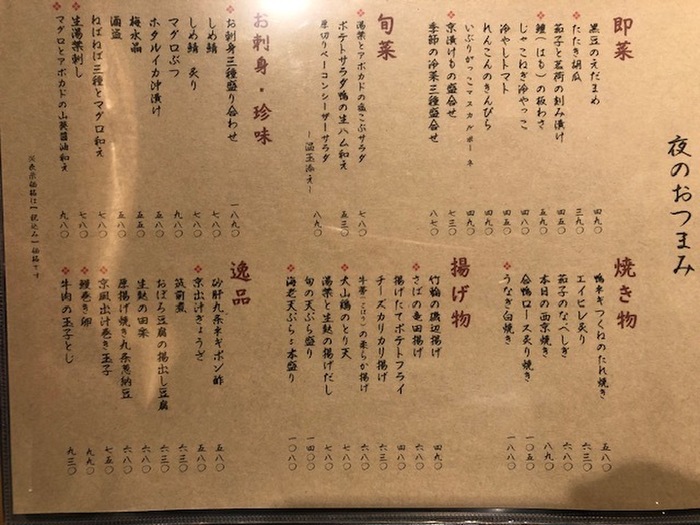 夜のおつまみ
即菜
黒豆のえだまめ 四九〇
たたき胡瓜 三九〇
茄子と茗荷の刻み漬け 四九〇
鱧(はも)の板わさ 五九〇
じゃこねぎ冷やっこ 四五〇
冷やしトマト 四五〇
れんこんのきんぴら 四九〇
いぶりがっこマスカルポーネ 四九〇
京漬けもの盛合せ 七三〇
季節の冷菜三種盛合せ 八七〇
旬菜
湯葉とアボカドの塩こぶサラダ 七八〇
ポテトサラダ鴨の生ハム和え 五三〇
厚切りベーコンシーザーサラダ
〜温玉添え〜 八九〇
お刺身・珍味
お刺身三種盛り合わせ 一八九〇
しめ鯖 七八〇
しめ鯖 炙り 七八〇
マグロぶつ 九八〇
ホタルイカ沖漬け 五八〇
梅水晶 五五〇
酒盗 五八〇
ねばねば三種とマグロ和え 七八〇
生湯葉刺し 七八〇
マグロとアボカドの山葵醤油和え 九八〇
※表示価格は【税込み】価格です
焼き物
鴨ネギつくねのたれ焼き 五八〇
エイヒレ炙り 六三〇
茄子のなべしぎ 六八〇
本日の西京焼き 八九〇
合鴨ロース炙り焼き 一〇五〇
うなぎ白焼き 一八八〇
揚げ物
竹輪の磯辺揚げ 四九〇
さばの竜田揚げ 六八〇
揚げたてポテトフライ 四八〇
チーズカリカリ揚げ 六三〇
牛蒡(ごぼう)の柔らか揚げ 六八〇
大山鶏のとり天 七八〇
湯葉と生麩の揚げだし 七八〇
旬の天ぷら盛り 一四〇〇
海老天ぷら二本盛り 一〇八〇
逸品
砂肝九条ネギポン酢 五八〇
京出汁ぎょうざ 五八〇
筑前煮 六三〇
おぼろ豆腐の揚出し豆腐 六三〇
生麩の田楽 六三〇
厚揚げ焼き九条葱納豆 六八〇
京風出汁巻き玉子 七五〇
鰻巻き卵 九九〇
牛肉の玉子とじ 九三〇